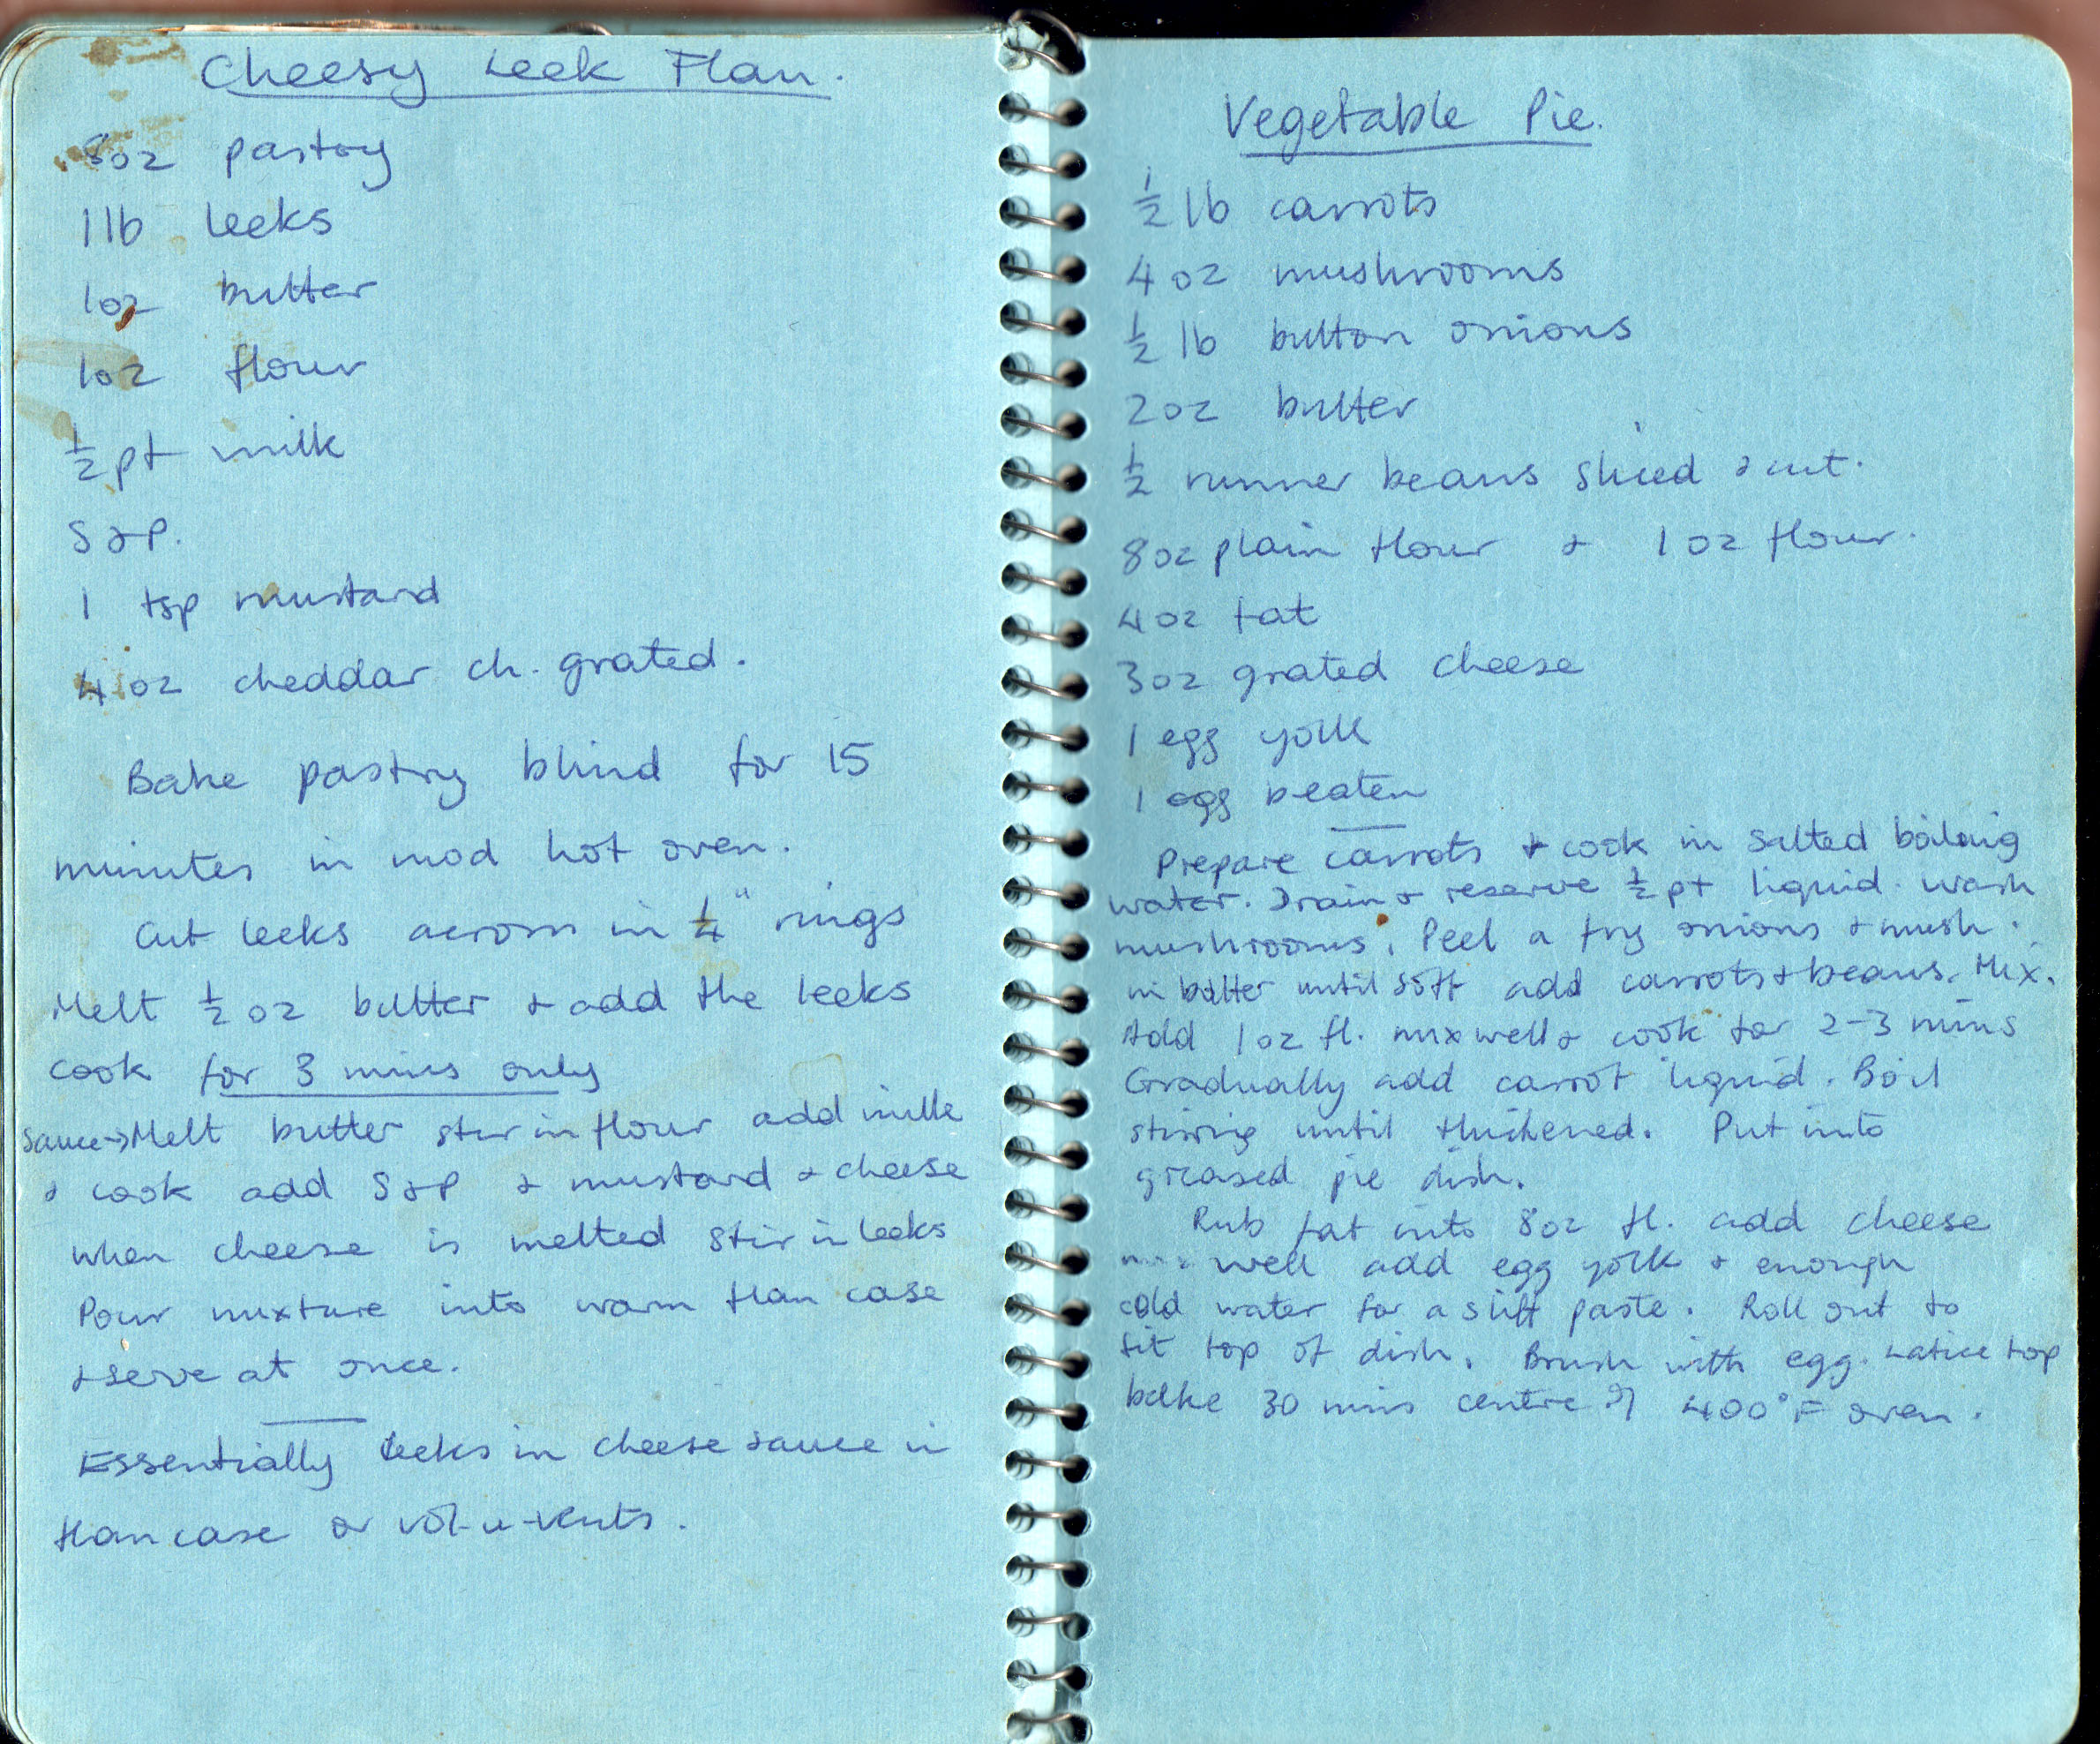 Cheesy Leek Flan.
8oz pastry
1lb leeks
1oz butter
1oz flour
½pt milk
S & P.
1 tsp mustard
4oz cheddar ch. grated.
Bake pastry blind for 15
minutes in mod hot oven.
Cut leeks across in ¼" rings
Melt ½oz butter & add the leeks
cook for 3 mins only
Sauce→Melt butter stir in flour add milk
& cook add S&P & mustard & cheese
when cheese is melted stir in leeks
Pour mixture into warm flan case
& serve at once.
Essentially leeks in cheese sauce in
flan case or vol-u-vents.
Vegetable Pie.
½lb carrots
4oz mushrooms
½lb button onions
2oz butter
½ runner beans sliced & cut.
8oz plain flour & 1oz flour.
4oz fat
3oz grated cheese
1 egg yolk
1 egg beaten
Prepare carrots & cook in salted boiling
water. Drain & reserve ½pt liquid. Wash
mushrooms. Peel & fry onions & mush.
in butter until soft add carrots & beans. Mix.
Add 1oz fl. mix well & cook for 2-3 mins
Gradually add carrot liquid. Boil
stirring until thickened. Put into
greased pie dish.
Rub fat into 8oz fl. add cheese
well add egg yolk & enough
cold water for a stiff paste. Roll out to
fit top of dish. Brush with egg. Latice top
bake 30 mins centre of 400°F oven.